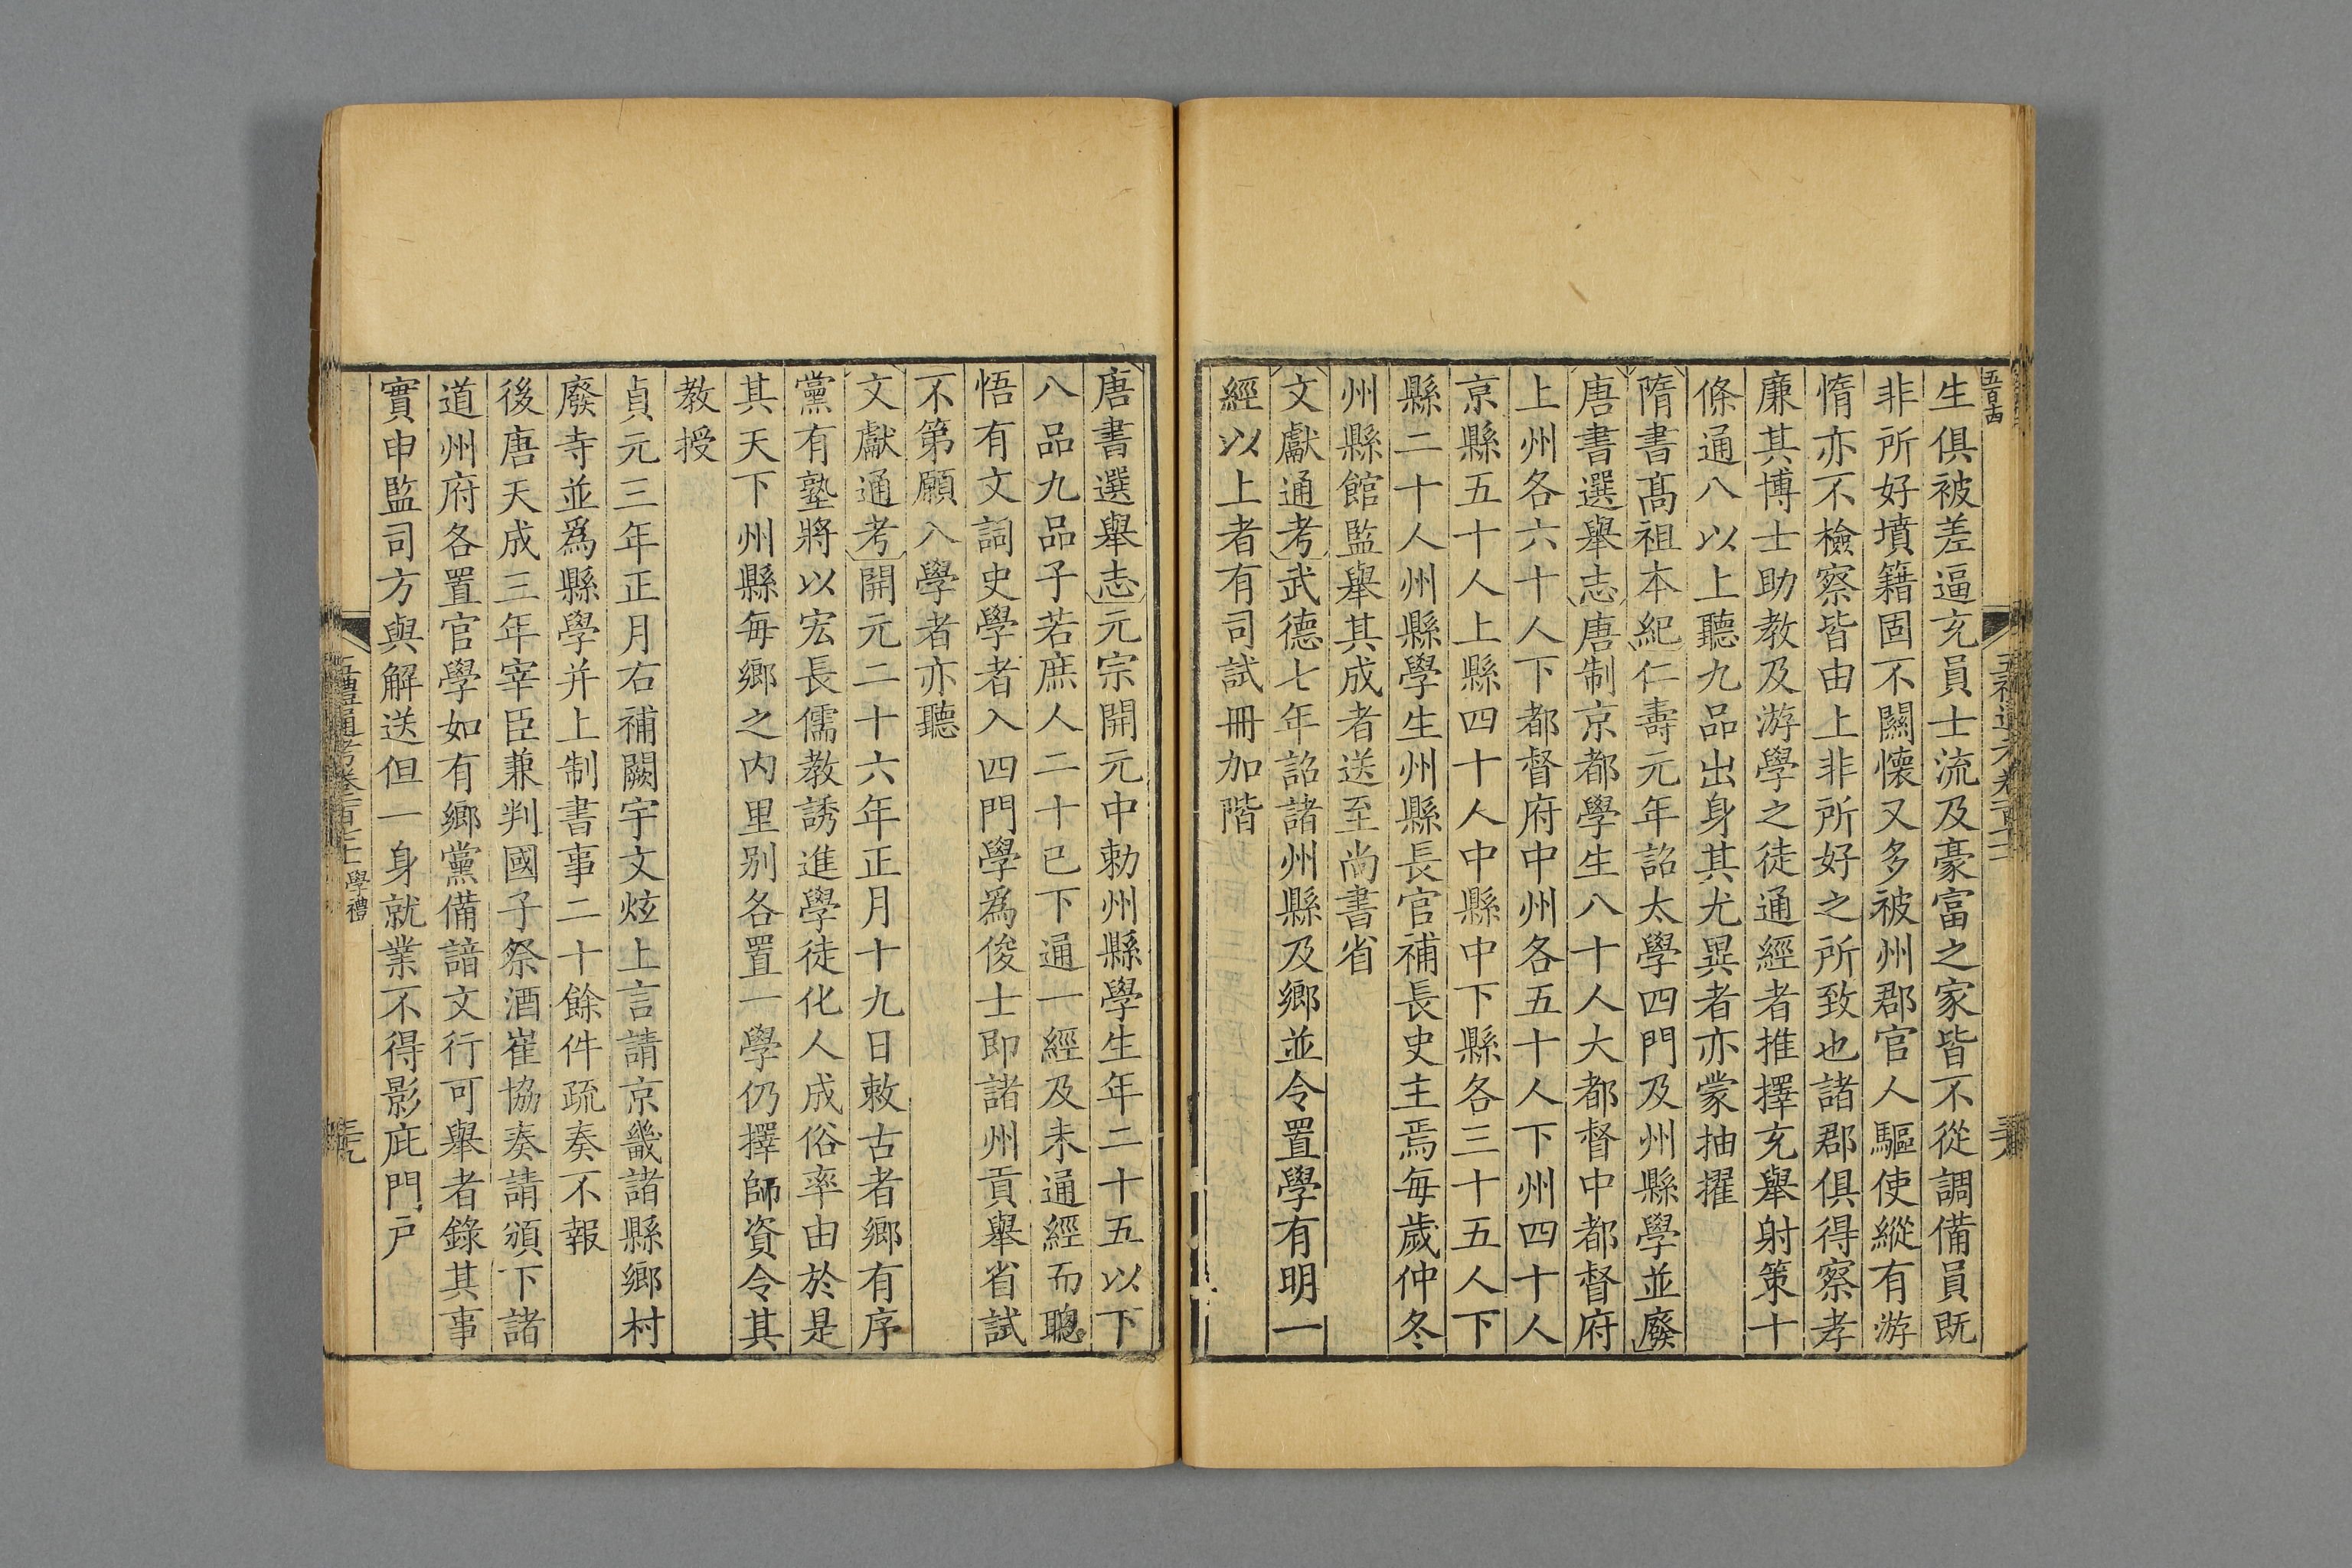 五百四
生俱被差逼充員士流及豪富之家皆不從調備員既
非所好墳籍固不關懷又多被州郡官人驅使縱有游
惰亦不檢察皆由上非所好之所致也諸郡俱得察孝
廉其博士助教及游學之徒通經者推擇充舉射策十
條通八以上聽九品出身其尤異者亦蒙抽擢
隋書髙祖本紀仁壽元年詔太學四門及州縣學並廢
唐書選舉志唐制京都學生八十人大都督中都督府
上州各六十人下都督府中州各五十人下州四十人
京縣五十人上縣四十人中縣中下縣各三十五人下
縣二十人州縣學生州縣長官補長史主焉每歲仲冬
州縣館監舉其成者送至尚書省
文獻通考武德七年詔諸州縣及鄉並令置學有明一
經以上者有司試冊加階
唐書選舉志元宗開元中勅州縣學生年二十五以下
八品九品子若庶人二十已下通一經及未通經而聰
悟有文詞史學者入四門學爲俊士即諸州貢舉省試
不第願入學者亦聽
文獻通考開元二十六年正月十九日敕古者鄉有序
黨有塾將以宏長儒教誘進學徒化人成俗率由於是
其天下州縣每鄉之內里别各置一學仍擇師資令其
教授
貞元三年正月右補闕宇文炫上言請京畿諸縣鄉村
廢寺並爲縣學并上制書事二十餘件疏奏不報
後唐天成三年宰臣兼判國子祭酒崔協奏請頒下諸
道州府各置官學如有鄉黨備諳文行可舉者錄其事
實申監司方與解送但一身就業不得影庇門戶
五禮通考卷一百七十二 學禮